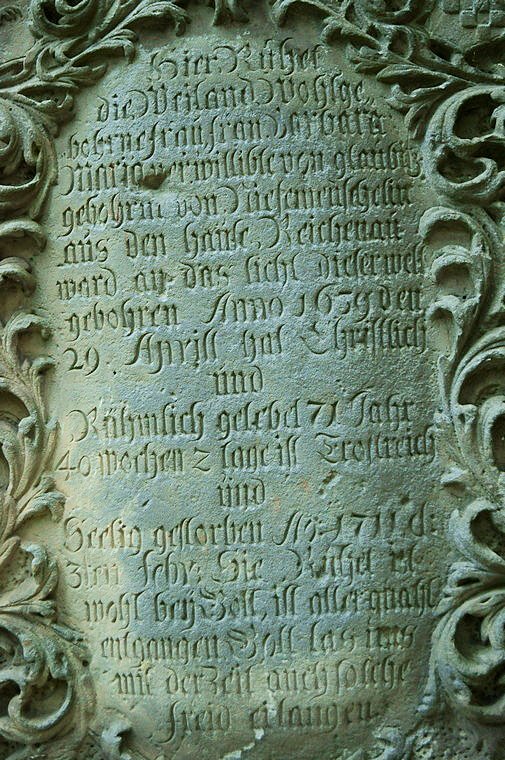 Hier Ruhet
die Weiland Wohlge
bohrne frau frau Barbara
Maria verwittibte von glaubitz
gebohrne von Niesemeuschelin
aus dem hause Reichenau
ward an das licht dieser welt
gebohren Anno 1639 den
29 Aprill hat Christlich
und
Rühmlich gelebet 71 Jahr
40 wochen 2 tage ist Trostreich
und
Seelig gestorben Ao: 1711 d:
3ten febr: Sie Ruhet
wohl beÿ Gott, ist aller quahl
entgangen Gott las uns
mit der Zeit auch solche
freid erlangen.